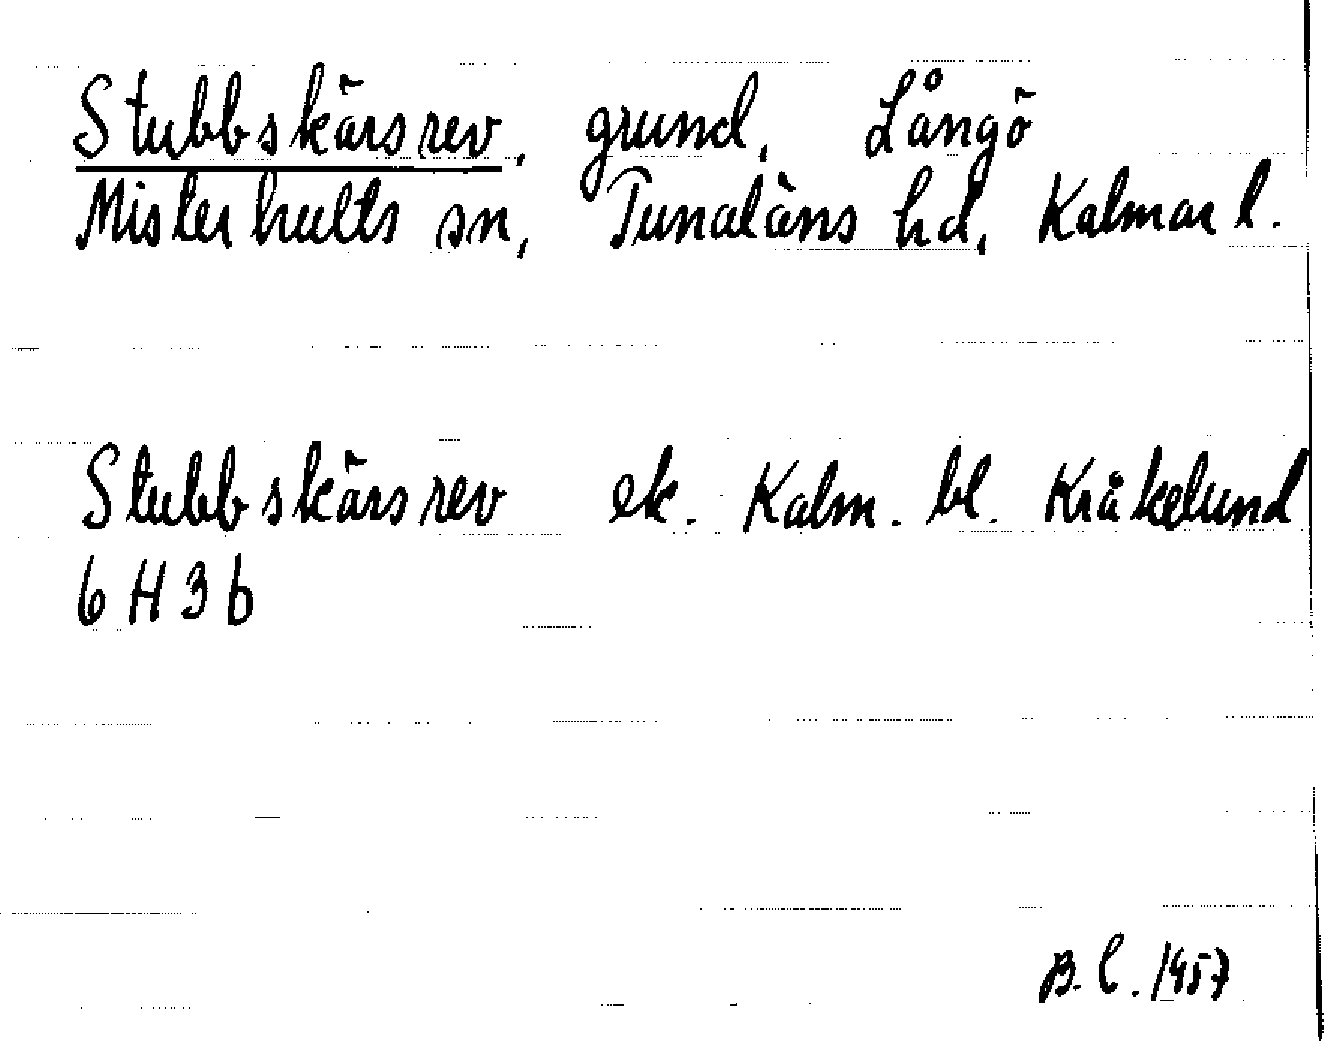 Stubbskärsrev, grund, Långö
Misterhults sn, Tunaläns hd, Kalmar l.
Stubbskärsrev ek. Kalm. bl. Kråkelund
6 H 3 b
B. C. 1957